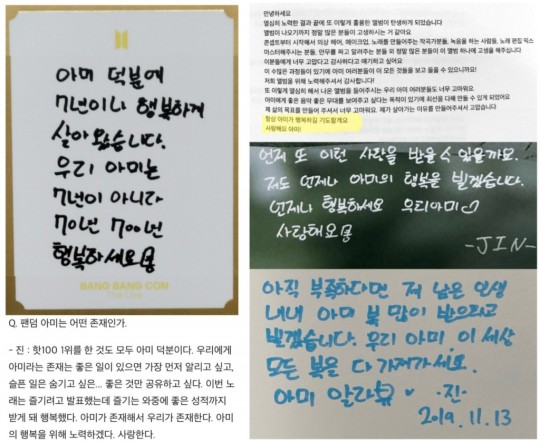 아미 덕분에
7년이나 행복하게
살아 왔습니다.
우리 아미는
7년이 아니라
70년 700년
행복하세요
BANG BANG CON
The Live
Q. 팬덤 아미는 어떤 존재인가.
- 진 : 핫100 1위를 한 것도 모두 아미 덕분이다. 우리에게
아미라는 존재는 좋은 일이 있으면 가장 먼저 알리고 싶고,
슬픈 일은 숨기고 싶은... 좋은 것만 공유하고 싶다. 이번 노
래는 즐기려고 발표했는데 즐기는 와중에 좋은 성적까지
받게 돼 행복했다. 아미가 존재해서 우리가 존재한다. 아미
의 행복을 위해 노력하겠다. 사랑한다.
안녕하세요
열심히 노력한 결과 끝에 또 이렇게 훌륭한 앨범이 탄생하게 되었습니다
앨범이 나오기까지 정말 많은 분들이 고생하시는 거 같아요
콘셉트부터 시작해서 의상 헤어, 메이크업, 노래를 만들어주는 작곡가분들, 녹음을 하는 사람들, 노래 편집 믹스
마스터해주시는 분들, 안무를 짜고 알려주시는 분들 외 정말 많은 분들이 이 앨범 하나에 고생을 해주십니다
이분들에게 너무 고맙다고 감사하다고 얘기하고 싶어요
이 수많은 과정들이 있기에 아미 여러분들이 이 모든 것들을 보고 들을 수 있으니까요!
저희 앨범을 위해 노력해주셔서 감사합니다!
또 이렇게 열심히 해서 나온 앨범을 들어주시는 우리 아미 여러분들도 너무 고마워요
아미에게 좋은 음악 좋은 무대를 보여주고 싶다는 목적이 있기에 최선을 다해 만들 수 있게 되었어요
제 삶의 목표를 만들어 주셔서 너무 고마워요. 제가 살아가는 이유를 만들어주셔서 고맙습니다
항상 아미가 행복하길 기도할게요
사랑해요 아미!
언제 또 이런 사랑을 받을 수 있을까요.
저도 언제나 아미의 행복을 빌겠습니다.
언제나 행복하세요 우리아미♡
사랑해요
-JIN-
아직 부족하다면 저 남은 인생
내내 아미 복 많이 받으라고
빌겠습니다. 우리 아미, 이 세상
모든 복을 다 가져가세요.
아미 알라뷰 -진-
2019. 11. 13